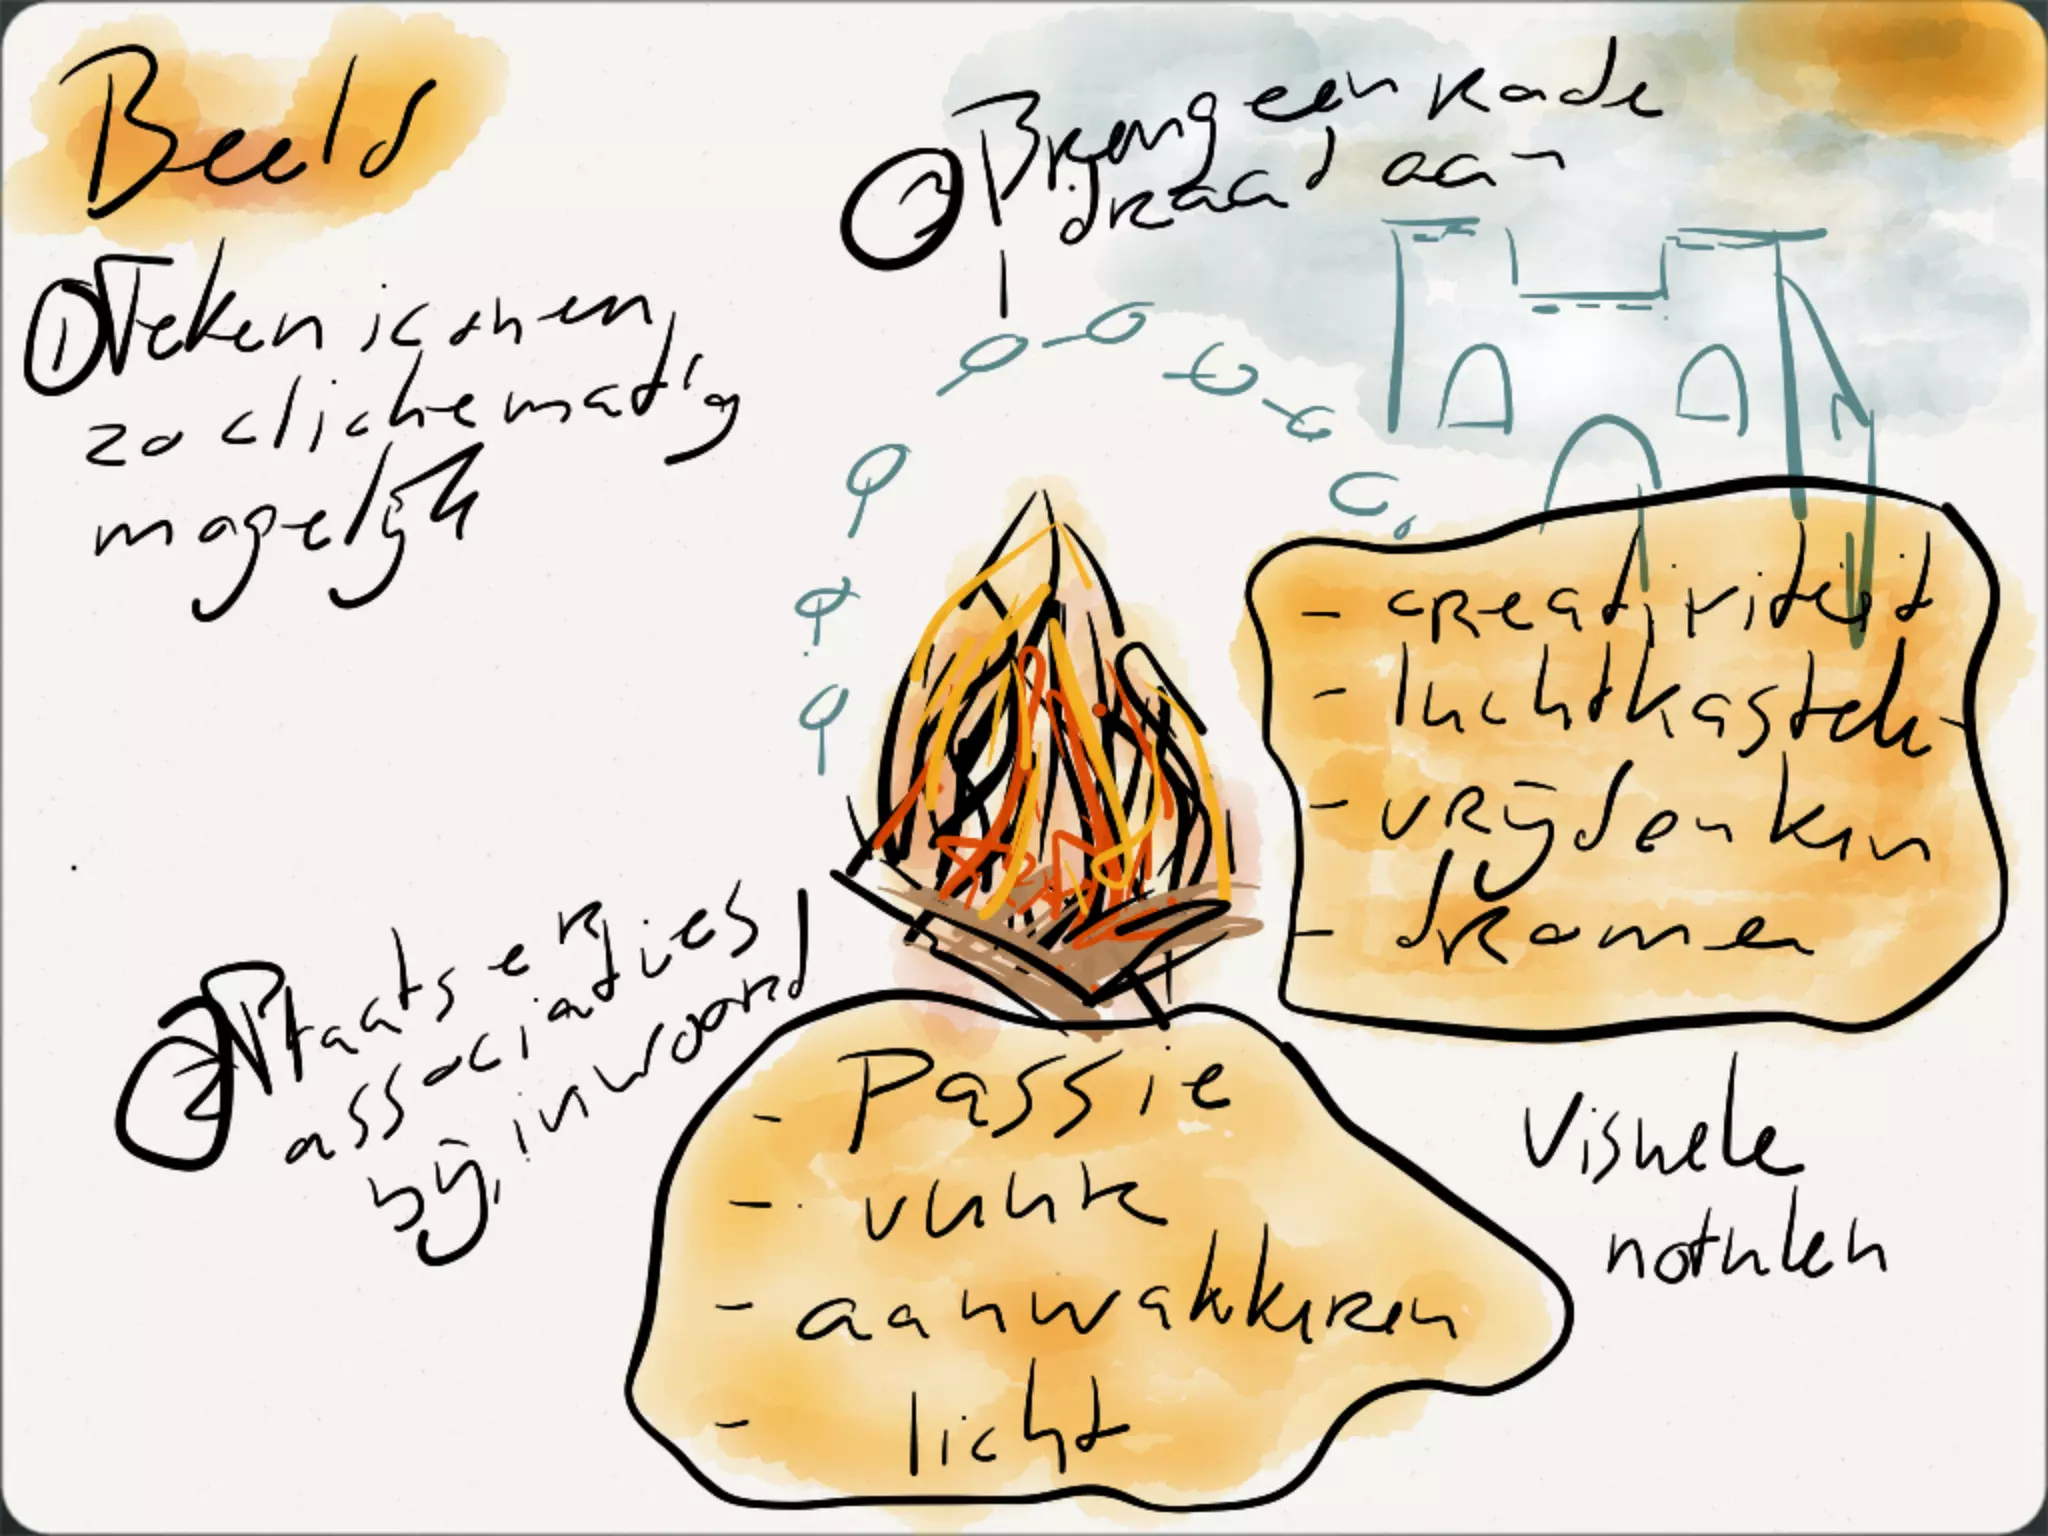 Beeld
① Teken iconen
zo clichematig
mogelijk
② Plaats er
associaties
bij, in woord
③ Breng een rode
draad aan
- creativiteit
- luchtkastelen
- vrij denken
- dromen
- Passie
- vuur
- aanwakkeren
- licht
Visuele
notulen